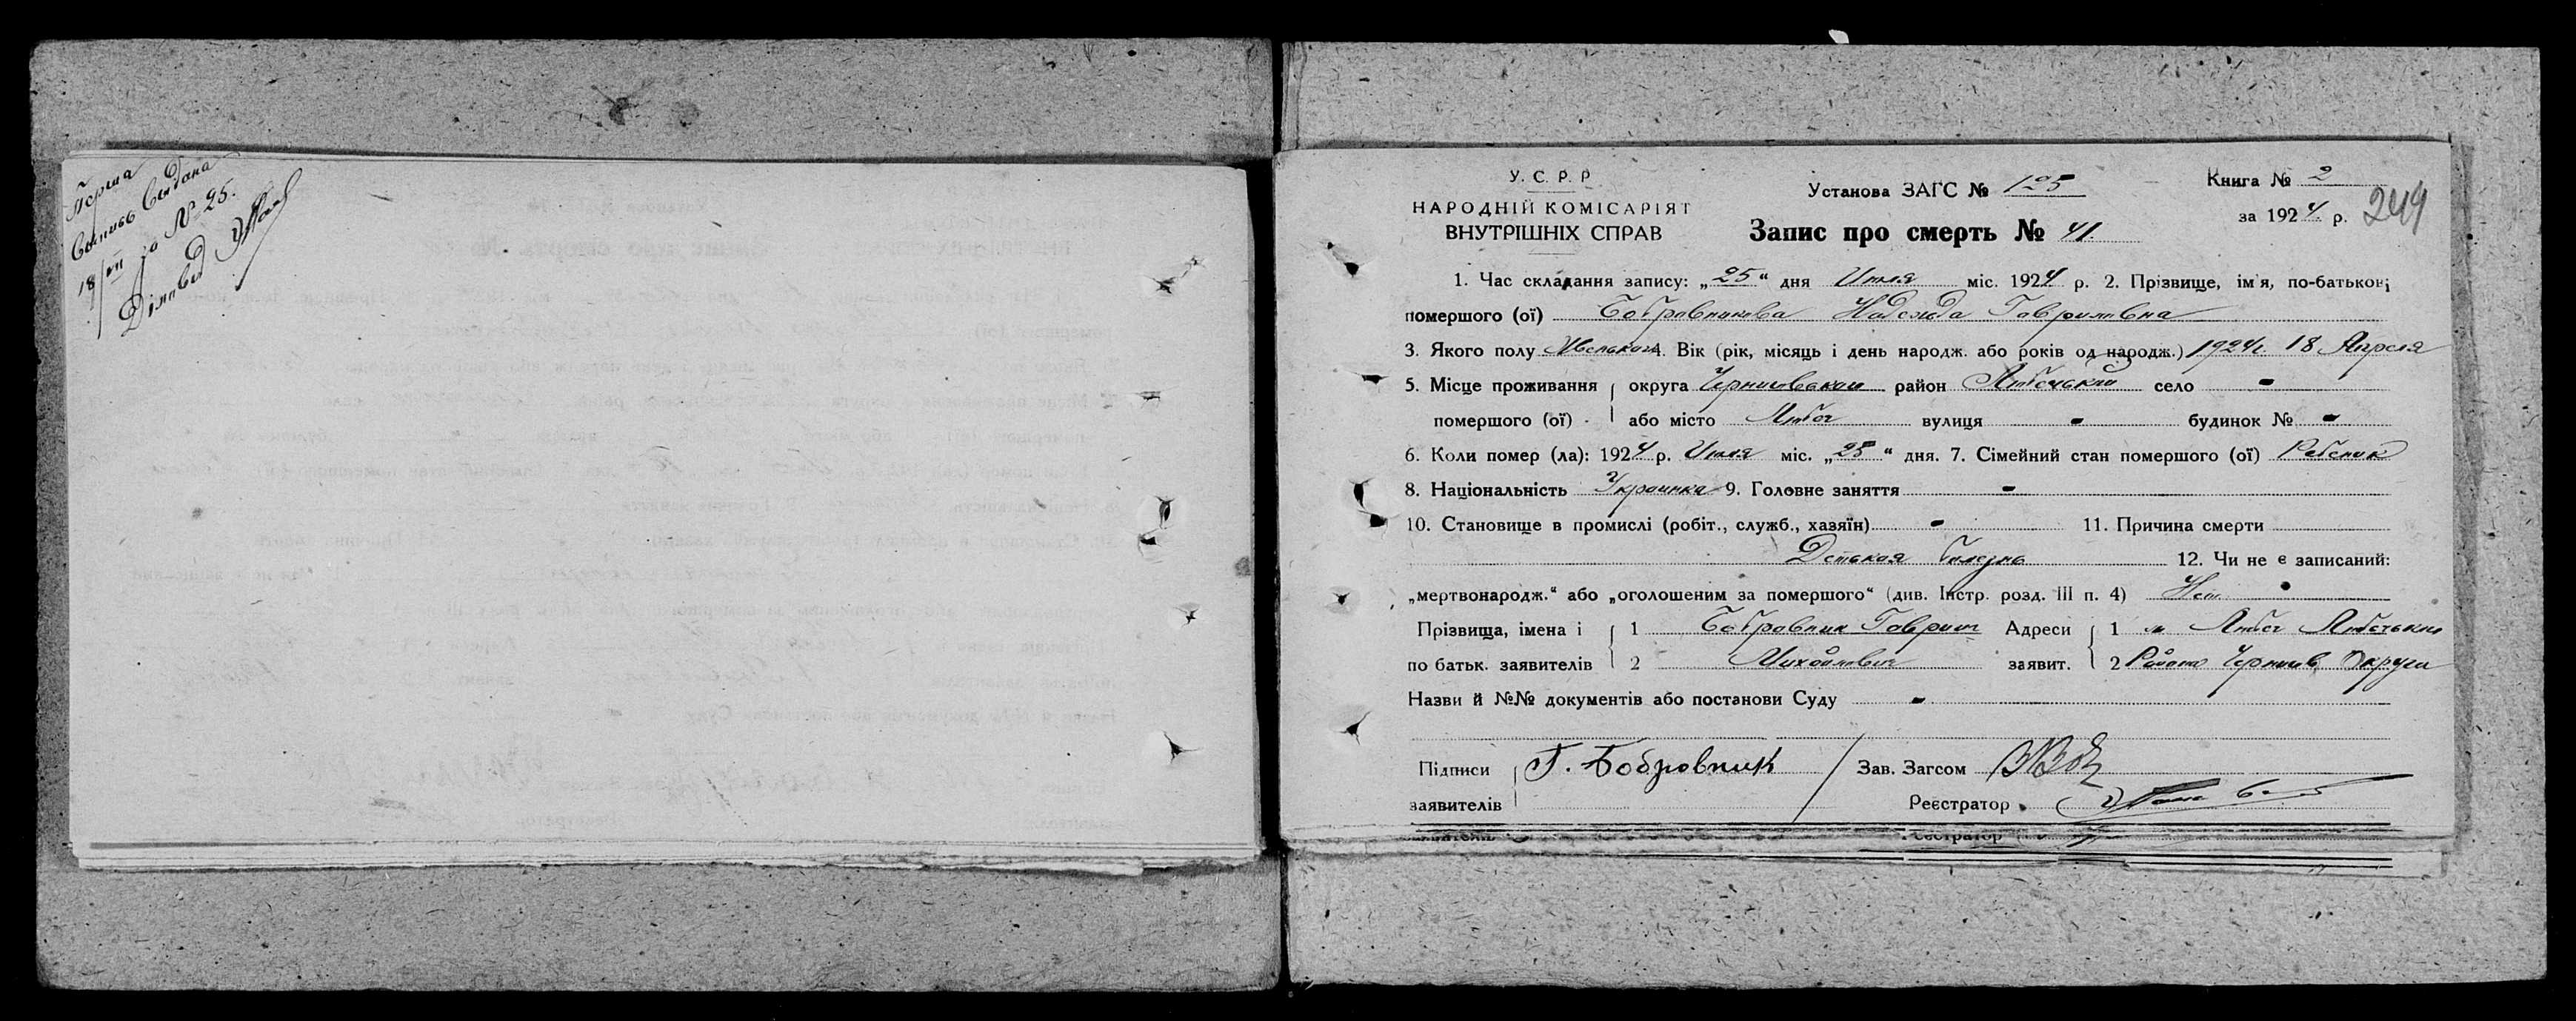 Перша
Выпись Выдана
18/VII за № 25.
Діловод
У. С. Р. Р
НАРОДНІЙ КОМІСАРІЯТ
ВНУТРІШНІХ СПРАВ
Установа ЗАГС № 125
Запис про смерть № 41.
Книга № 2
за 1924 р.
244
1. Час складання запису: „25" дня Июля міс. 1924 р. 2. Прізвище, ім'я, по-батькові
помершого (ої) Бобровникова Надежда Гавриловна
3. Якого полу Женского 4. Вік (рік, місяць і день народж. або років од народж.) 1924 г. 18 Апреля
5. Місце проживання округа Черниговской район Любечький село -
помершого (ої) або місто Любеч вулиця - будинок № -
6. Коли помер (ла): 1924 р. Июля міс. „25" дня. 7. Сімейний стан помершого (ої) Ребенок
8. Національність Украинка 9. Головне заняття -
10. Становище в промислі (робіт., служб., хазяїн) - 11. Причина смерти
Детская болезнь 12. Чи не є записаний:
„мертвонародж." або „оголошеним за помершого" (див. Інстр. розд. III п. 4) Нет
Прізвища, імена і 1 Бобровник Гавриил Адреси 1 м Любеч Любечького
по батьк. заявителів 2 Михайлович заявит. 2 Района Чернигов. Округи
Назви й №№ документів або постанови Суду -
Підписи Г. Бобровник Зав. Загсом
заявителів Реєстратор
Реєстратор